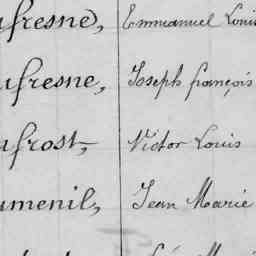 ufresne, Emmanuel Louis
ufresne, Joseph françois
ufrost, Victor Louis
umenil, Jean Marie